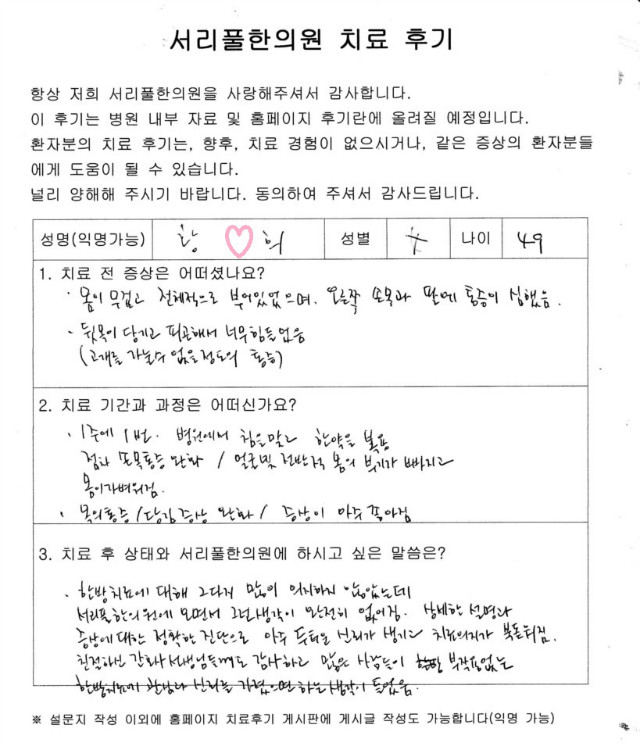 서리풀한의원 치료 후기
항상 저희 서리풀한의원을 사랑해주셔서 감사합니다.
이 후기는 병원 내부 자료 및 홈페이지 후기란에 올려질 예정입니다.
환자분의 치료 후기는, 향후, 치료 경험이 없으시거나, 같은 증상의 환자분들
에게 도움이 될 수 있습니다.
널리 양해해 주시기 바랍니다. 동의하여 주셔서 감사드립니다.
성명(익명가능) 황 희 성별 나이 49
1. 치료 전 증상은 어떠셨나요?
· 몸이 무겁고 전체적으로 부어있었으며, 오른쪽 손목과 팔에 통증이 심했음.
· 뒷목이 당기고 피곤해서 너무 힘들었음
(고개를 가눌수 없을정도의 통증)
2. 치료 기간과 과정은 어떠신가요?
· 1주에 1번. 병원에서 침을맞고 한약을 복용
점차 손목통증 완화 / 얼굴및 전반적 몸의 부기가 빠지고
몸이가벼워짐.
· 목의통증 / 당김증상 완화 / 증상이 아주 좋아짐
3. 치료 후 상태와 서리풀한의원에 하시고 싶은 말씀은?
· 한방치료에 대해 그다지 많이 의지하지 않았는데
서리풀한의원에 오면서 그런생각이 완전히 없어짐. 상세한 설명과
증상에대한 정확한 진단으로 아주 두터운 신뢰가 생기고 치료의지가 북돋워짐.
친절하신 간호사선생님들께도 감사하고 많은 사람들이 부작용없는
한방치료에 관심과 신뢰를 가졌으면 하는 생각이 들었음.
※ 설문지 작성 이외에 홈페이지 치료후기 게시판에 게시글 작성도 가능합니다(익명 가능)